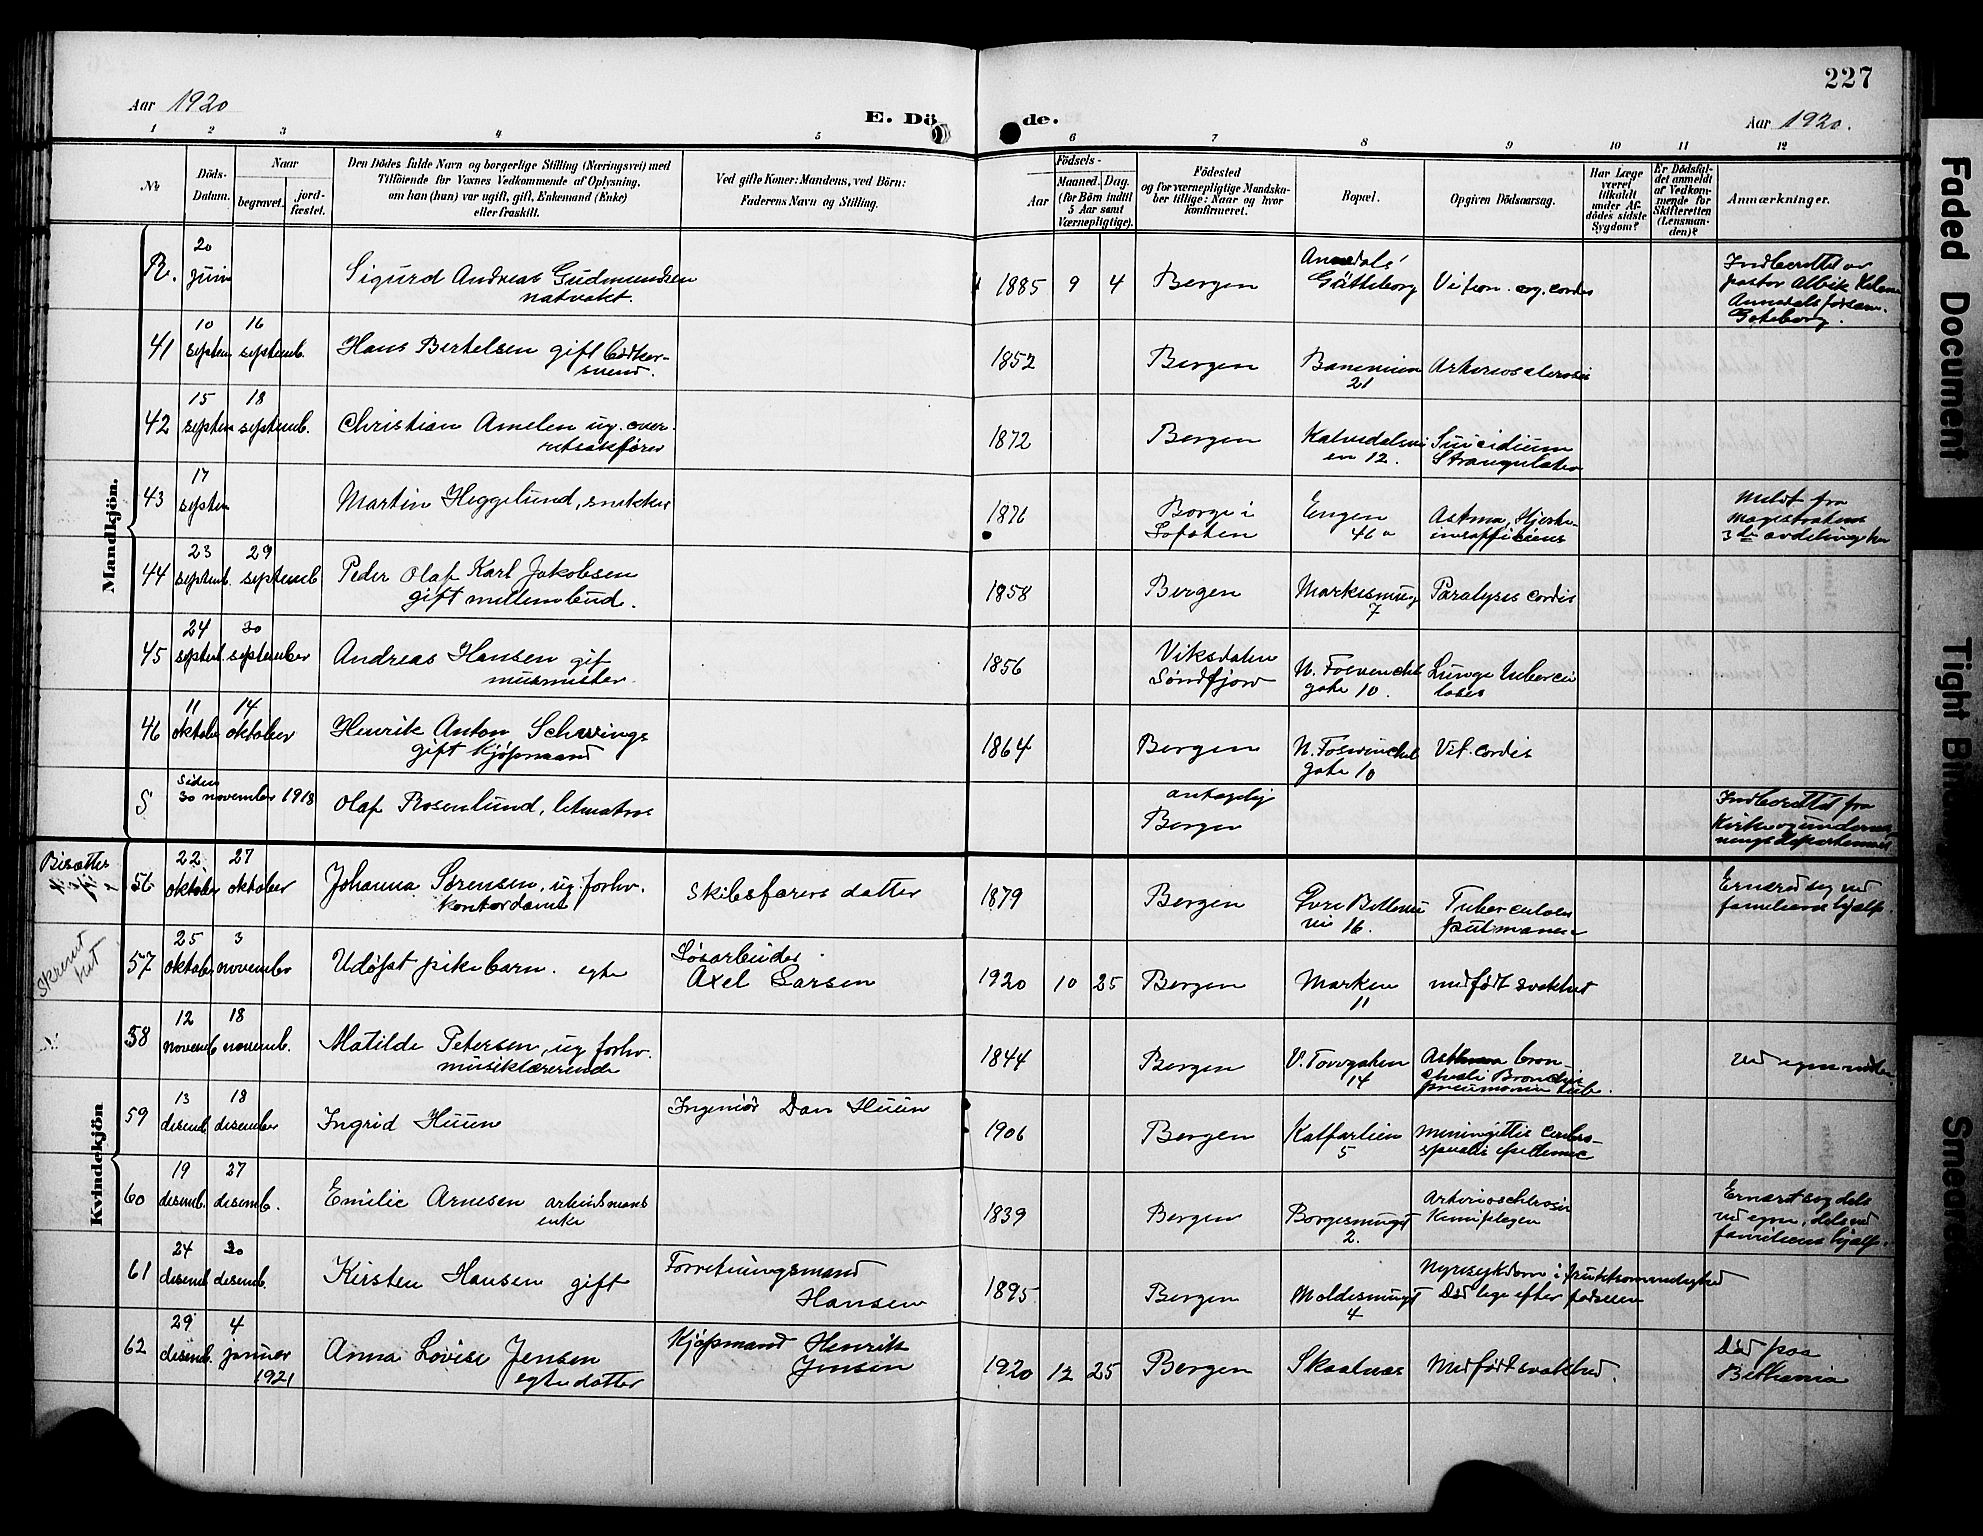 227
Aar 1920
E. Dö de.
Aar 1920.
1 2 3 4 5 6 7 8 9 10 11 12
№
Döds-Datum.
Naar
begravet.
jord-fæstet.
Den Dödes fulde Navn og borgerlige Stilling (Næringsvei) med
Tilföiende for Voxnes Vedkommende af Oplysning,
om han (hun) var ugift, gift, Enkemand (Enke)
eller fraskilt.
Ved gifte Koner: Mandens, ved Börn:
Faderens Navn og Stilling.
Födsels-
Aar
Maaned. Dag.
(for Börn indtil
5 Aar samt
Værnepligtige).
Födested
og for værnepligtige Mandska-
ber tillige: Naar og hvor
konfirmeret.
Bopæl.
Opgiven Dödsaarsag.
Har Læge
været
tilkaldt
under Af-
dödes sidste
Sygdom?
Er Dödsfal-
det anmeldt
af Vedkom-
mende for
Skifteretten
(Lensman-
den)?
Anmærkninger.
Mandkjön.
R. 20 juni Sigurd Andreas Gudmundsen
natvakt.
1885 9 4 Bergen
Göteborg
Indberettet av
pastor
Göteborg.
41 10 septem 16 septemb. Hans Bertelsen gift bödker-
svend.
1852 Bergen
21
42 15 septem 18 septemb. Christian Amelen ug. over-
retssakfører
1872 Bergen Kalvedalsvei
en 12. Suicidium
Strangulation
43 17 septem Martin Heggelund, snekker
1876 Borge i
Lofoten Engen
46 a Astma, Hjerte-
insufficiens
Meldt fra
Magistratens
3de avdeling
44 23 septemb. 29 septemb Peder Olaf Karl Jakobsen
gift mellembud.
1858 Bergen Markesmug
7 Paralysis cordis
45 24 septemb. 30 september Andreas Hansen gift
murmester.
1856 Viksdalen
Söndfjord
gate 10. Lunge tubercu
loses
46 11 oktober 14 oktober Henrik Anton Schwings
gift kjøpmand
1864 Bergen
gate 10 Vit. cordis
S siden
30 november 1918 Olaf Rosenlund, letmatros
antagelig
Bergen
Indberettet fra
Kirke og undervis-
ningsdepartementet
Kvindekjön
Bisættes
56 22 oktober 27 oktober Johanna Sørensen, ug. forhv.
kontordame Skibsførers datter
1879 Bergen
16. Tuberculosis
pulmonum
Ernæred sig ved
familiens hjælp
Skrevet
ut
57 25 oktober 3 november Udøpt pikebarn. egte Løsarbeider
Axel Larsen
1920 10 25 Bergen Marken
11 medfødt svakhet
58 12 novemb 18 novemb. Matilde Petersen, ug. forhv.
musiklærerinde
1844 Bergen V. Torvgaten
14
ved egne midler
59 13 desemb. 18 desember Ingrid Huun Ingeniör Dan Huun
1906 Bergen Kalfarlien
5 Meningitis cerebro-
spinalis epidemic
60 19 desemb. 27 desemb. Emilie Arnesen arbeidsmands
enke
1839 Bergen Borgesmuget
2. Arteriosclerosis
Hemiplegen
Ernæret sig dels
ved egne, dels ved
familiens hjælp.
61 24 desemb 30 desemb. Kirsten Hansen gift Forretningsmand
Hansen
1895 Bergen Moldesmuget
4 Nyresykdom i fruktsommelighed
Død lige efter fødselen
62 29 desemb. 4 januar
1921 Anna Lovise Jensen
egte datter Kjøpmand Henrik
Jensen
1920 12 25 Bergen Skaalnes Medfødt svakhed.
Død paa
Bethania
Faded Document
Tight Bin
Smeared